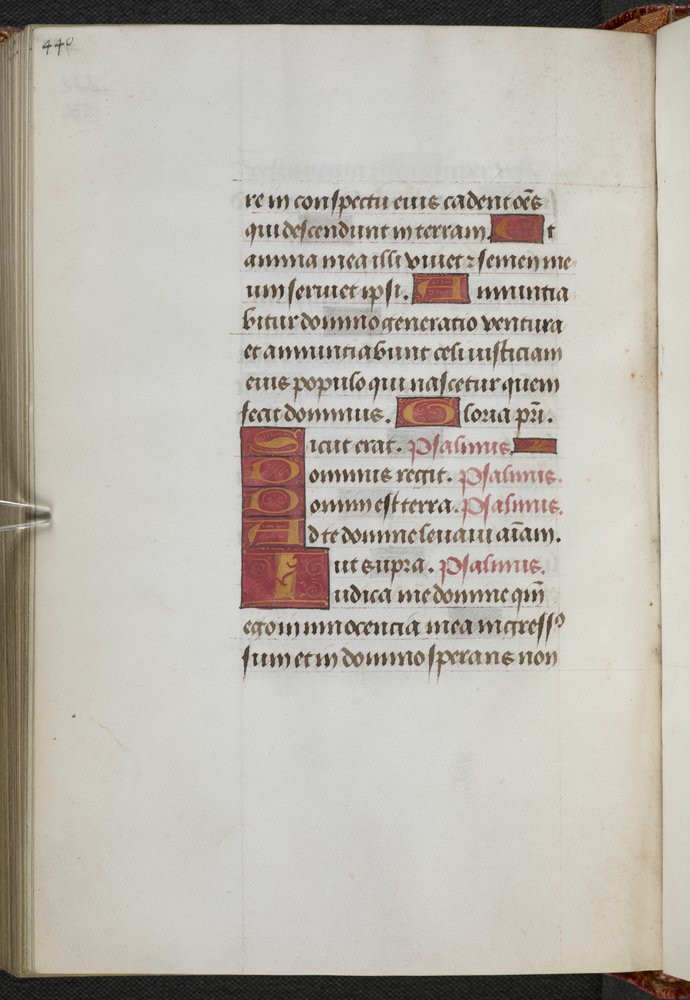 440
re in conspectu eius cadent oēs
qui descendunt in terram. Et
anima mea illi viuet ⁊ semen me
um seruiet ipsi. Annuntia
bitur domino generatio ventura
et annuntiabunt celi iusticiam
eius populo qui nascetur quem
fecit dominus. Gloria pr̄i.
Sicut erat. Psalmus.
Dominus regit. Psalmus.
Domini est terra. Psalmus.
Ad te domine leuaui aīam.
ut supra. Psalmus.
Iudica me domine qm̄
ego in innocencia mea ingressꝰ
sum et in domino sperans non